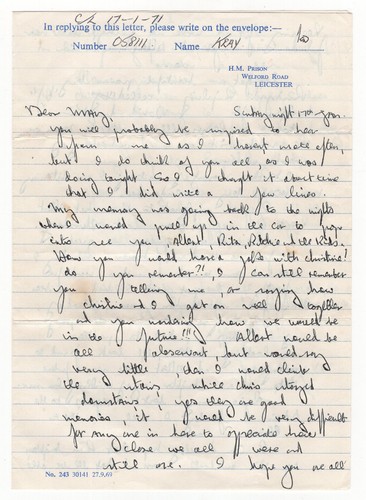 C/L 17-1-71
In replying to this letter, please write on the envelope:—
Number 058111 Name KRAY
H.M. PRISON
WELFORD ROAD
LEICESTER
Dear Mary, Sunday night 17th Jan.
You will probably be surprised to hear
from me as I havent wrote often,
but I do think of you all, as I was
doing tonight. So I thought it about time
that I did write a few lines.
My memory was going back to the nights
when I would pull up in the car to pop
into see you, Albert, Rita, Ritchie & the Kids.
How you would have a joke with christine!
do you remember?!, I can still remember
you telling me, or saying how
christine & I got on well together
and you wondering how we would be
in the future!!! Albert would be
all observant, but would say
very little, then I would climb
the stairs while chris stayed
downstairs!, yes they are good
memories, it would be very difficult
for anyone in here to appreciate how
close we all were and
still are. I hope you are all
No. 243 30141 27.9.69